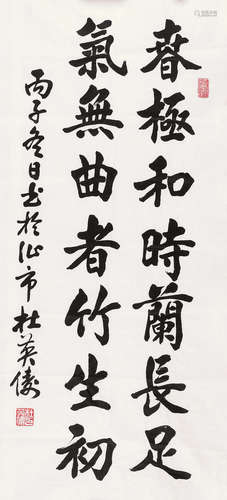 春極和時蘭長足
氣無曲者竹生初
丙子冬日书於沚市杜英俊